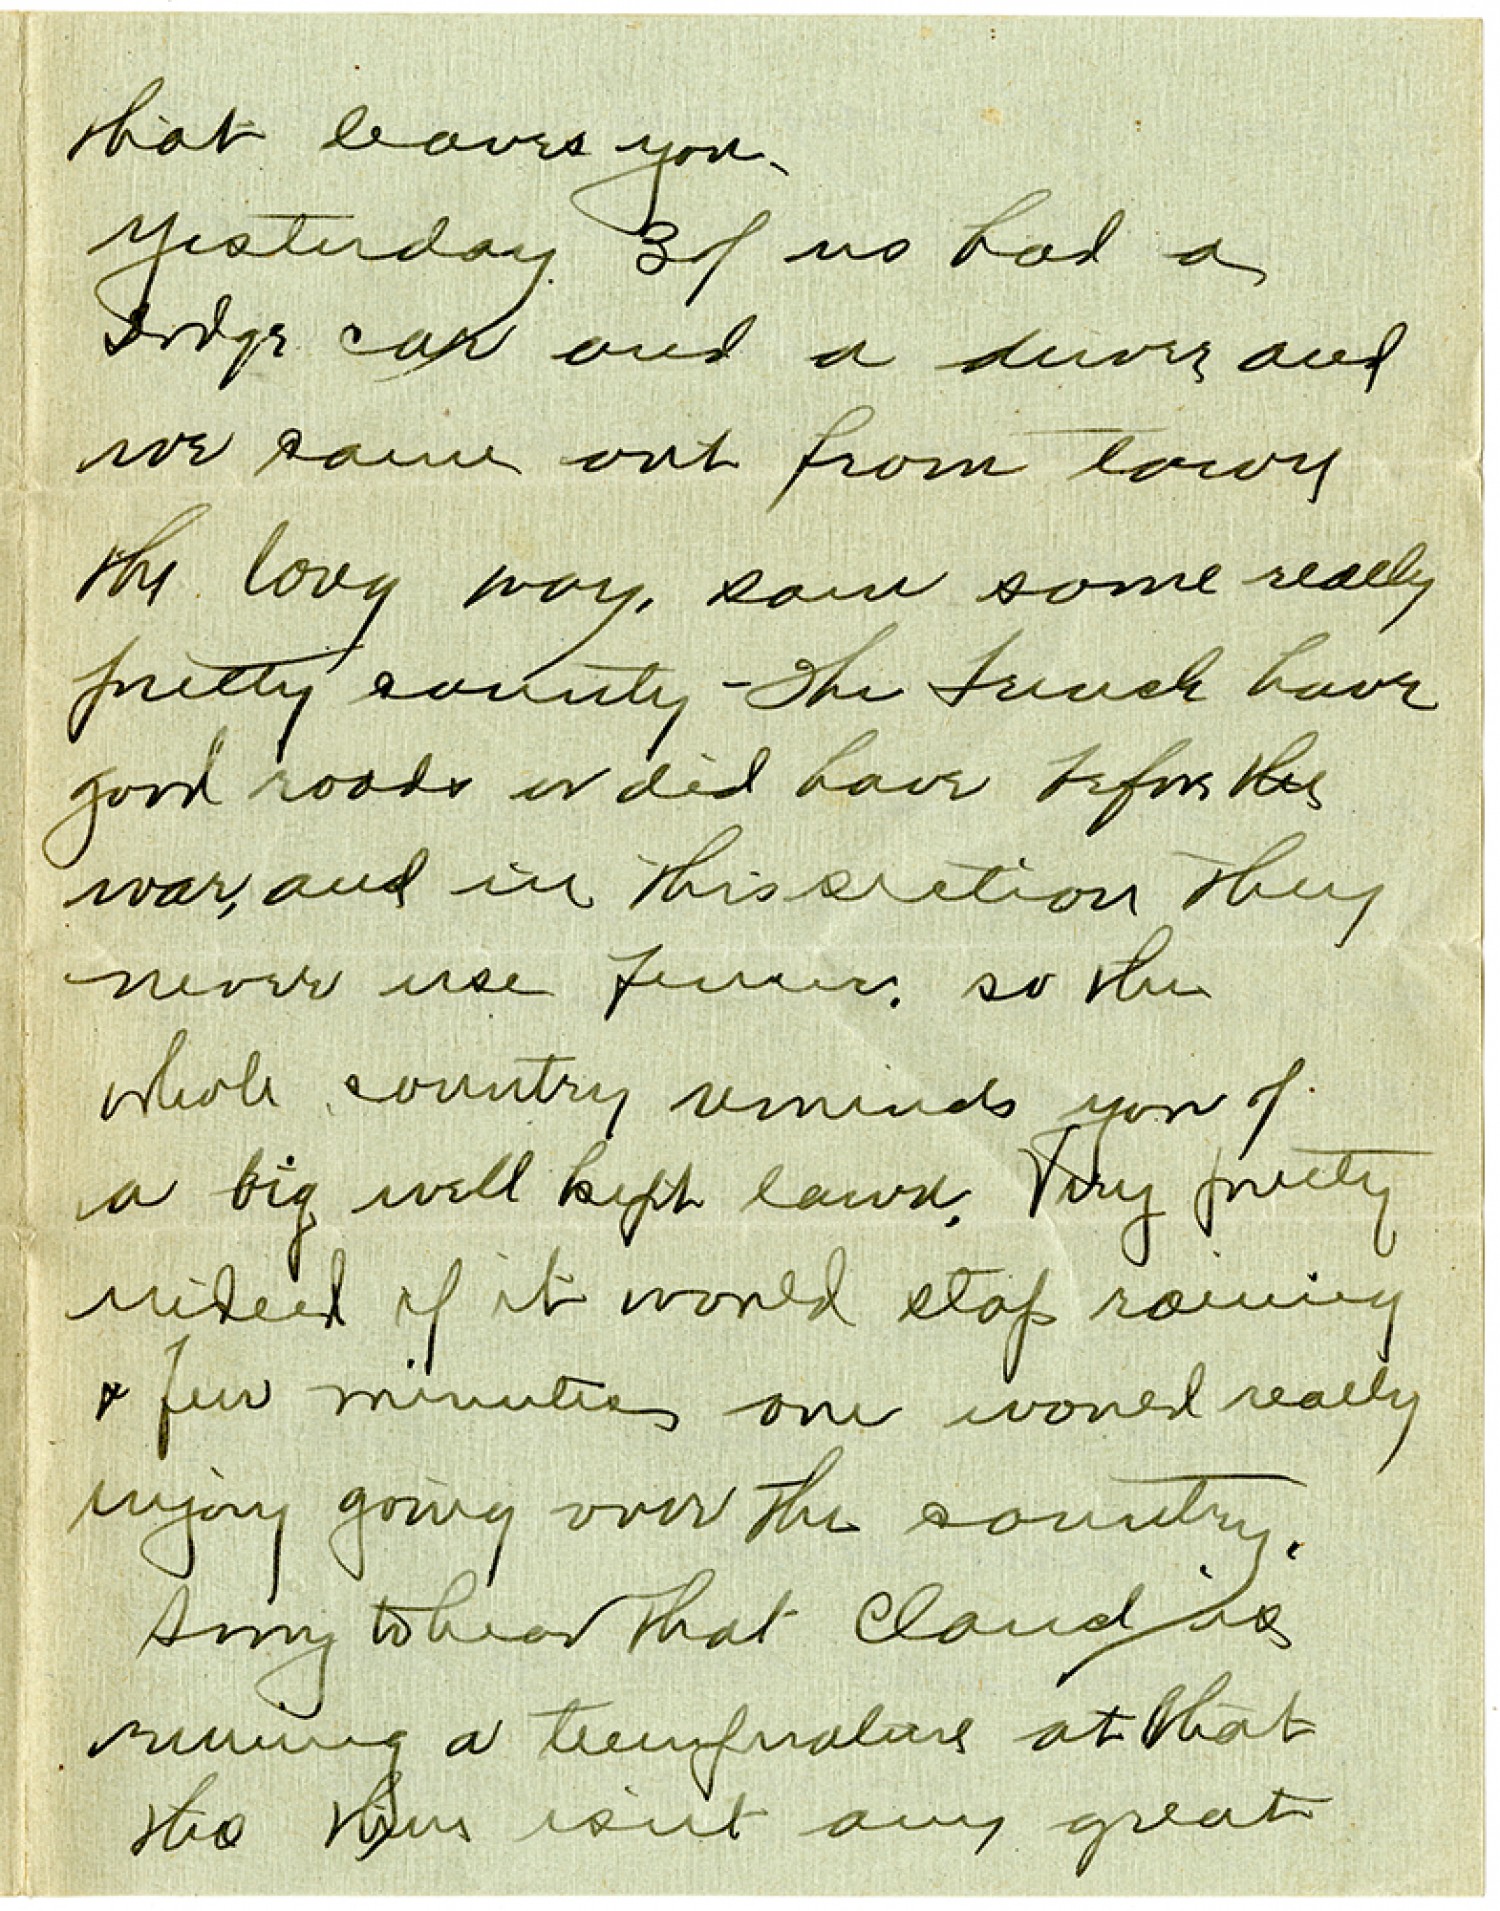 that leaves you.
Yesterday 3 of us had a
Dodge car and a driver and
we came out from town
the long way, saw some really
pretty country - The French have
good roads or did have before the
war, and in this section they
never use fences. so the
whole country reminds you of
a big well kept lawn. Very pretty
indeed if it would stop raining
a few minutes one would really
enjoy going over the country.
Sorry to hear that Claud is
running a temperature at that
tho isnt any great